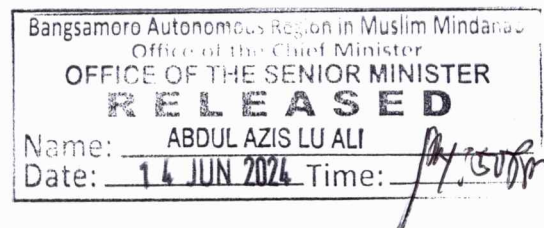 Bangsamoro Autonomous Region in Muslim Mindanao
Office of the Chief Minister
OFFICE OF THE SENIOR MINISTER
RELEASED
Name: ABDUL AZIS LU ALI
Date: 14 JUN 2024 Time: